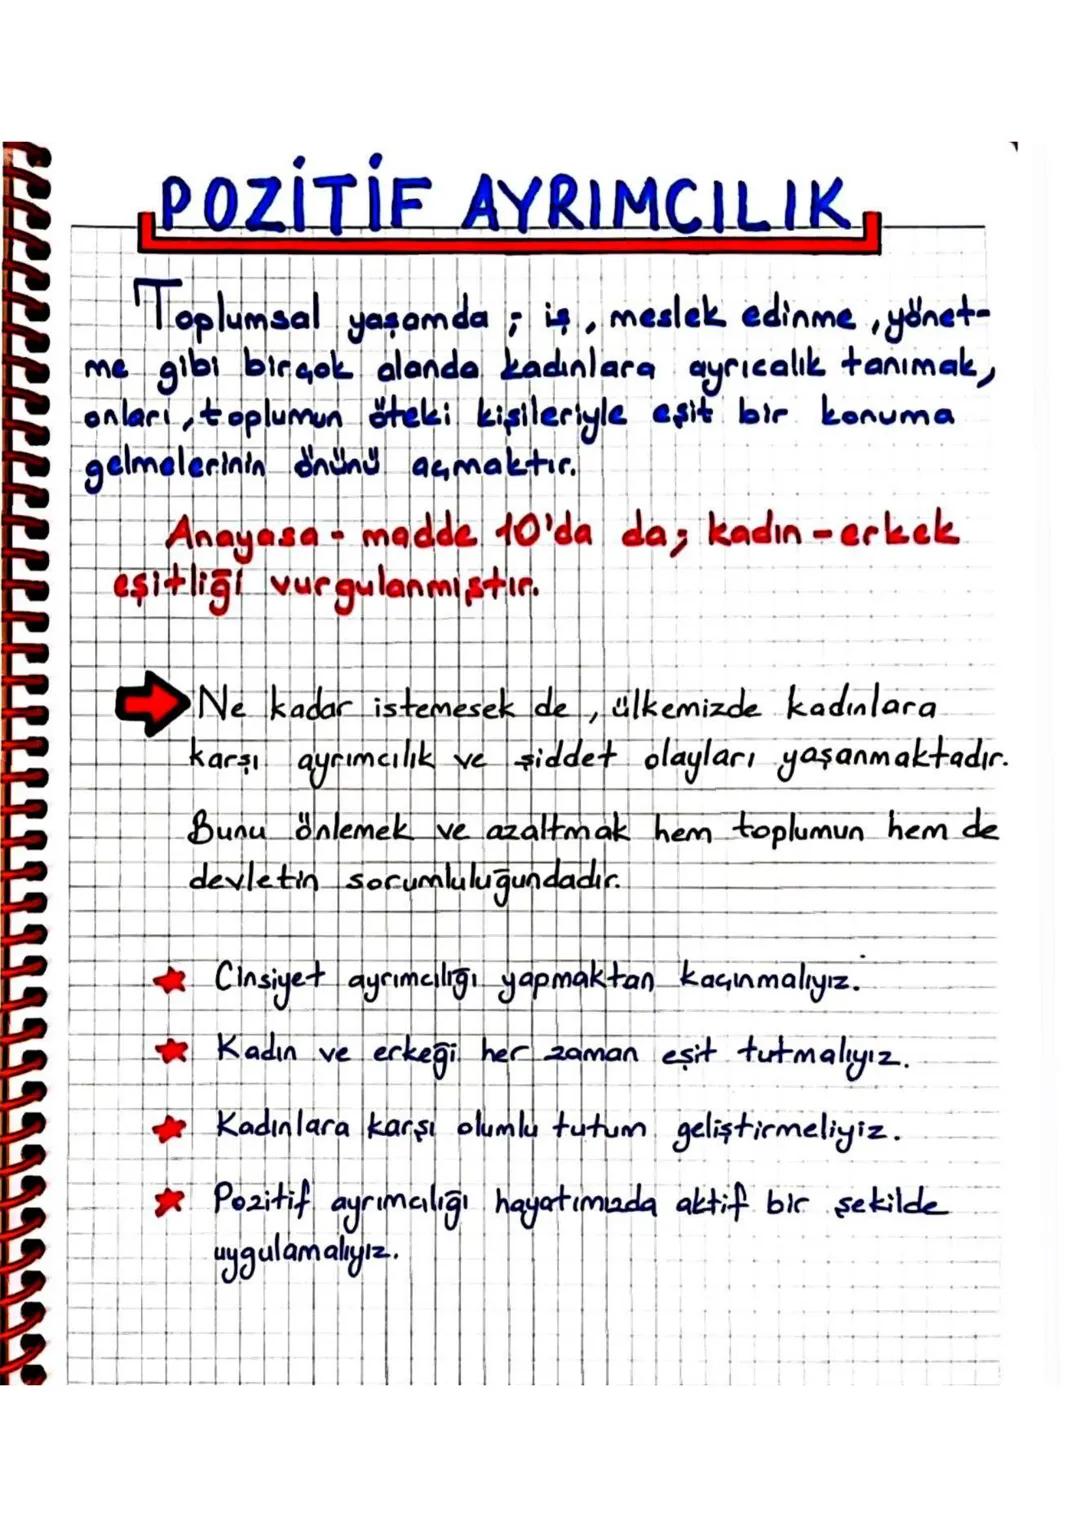 POZİTİF AYRIMCILIK
Toplumsal yaşamda ; iş , meslek edinme , yönet-
me gibi birçok alanda kadınlara ayrıcalık tanımak,
onları , toplumun öteki kişileriyle eşit bir konuma
gelmelerinin önünü açmaktır.
Anayasa - madde 10'da da; kadın - erkek
eşitliği vurgulanmıştır.
Ne kadar istemesek de , ülkemizde kadınlara
karşı ayrımcılık ve şiddet olayları yaşanmaktadır.
Bunu önlemek ve azaltmak hem toplumun hem de
devletin sorumluluğundadır.
Cinsiyet ayrımcılığı yapmaktan kaçınmalıyız.
Kadın ve erkeği her zaman eşit tutmalıyız.
Kadınlara karşı olumlu tutum geliştirmeliyiz.
Pozitif ayrımcılığı hayatımızda aktif bir şekilde
uygulamalıyız.